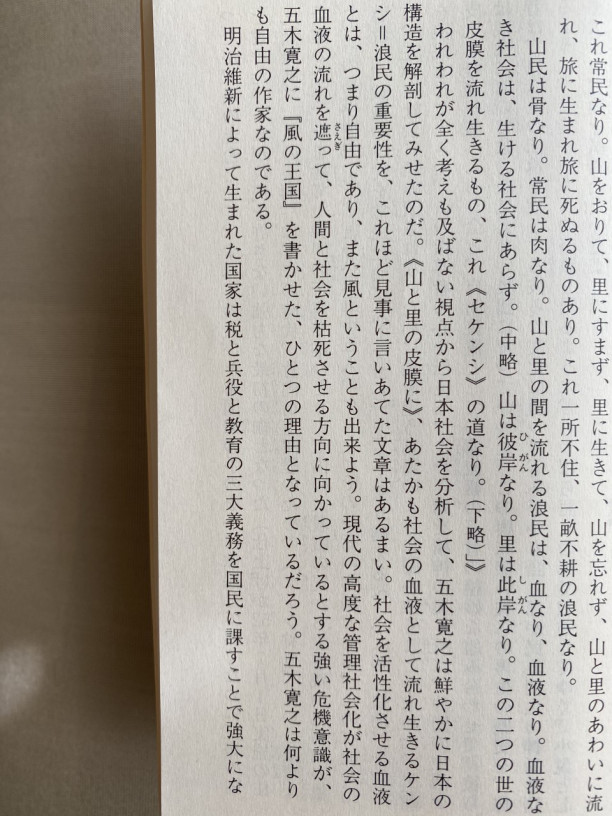 これ常民なり。山をおりて、里にすまず、里に生きて、山を忘れず、山と里のあわいに流
れ、旅に生まれ旅に死ぬるものあり。これ一所不住、一畝不耕の浪民なり。
山民は骨なり。常民は肉なり。山と里の間を流れる浪民は、血なり、血液なり。血液な
き社会は、生ける社会にあらず。（中略）山は彼岸なり。里は此岸なり。この二つの世の
皮膜を流れ生きるもの、これ《セケンシ》の道なり。（下略）」》
われわれが全く考えも及ばない視点から日本社会を分析して、五木寛之は鮮やかに日本の
構造を解剖してみせたのだ。《山と里の皮膜に》、あたかも社会の血液として流れ生きるケン
シ＝浪民の重要性を、これほど見事に言いあてた文章はあるまい。社会を活性化させる血液
とは、つまり自由であり、また風ということも出来よう。現代の高度な管理社会化が社会の
血液の流れを遮って、人間と社会を枯死させる方向に向かっているとする強い危機意識が、
五木寛之に『風の王国』を書かせた、ひとつの理由となっているだろう。五木寛之は何より
も自由の作家なのである。
明治維新によって生まれた国家は税と兵役と教育の三大義務を国民に課すことで強大にな